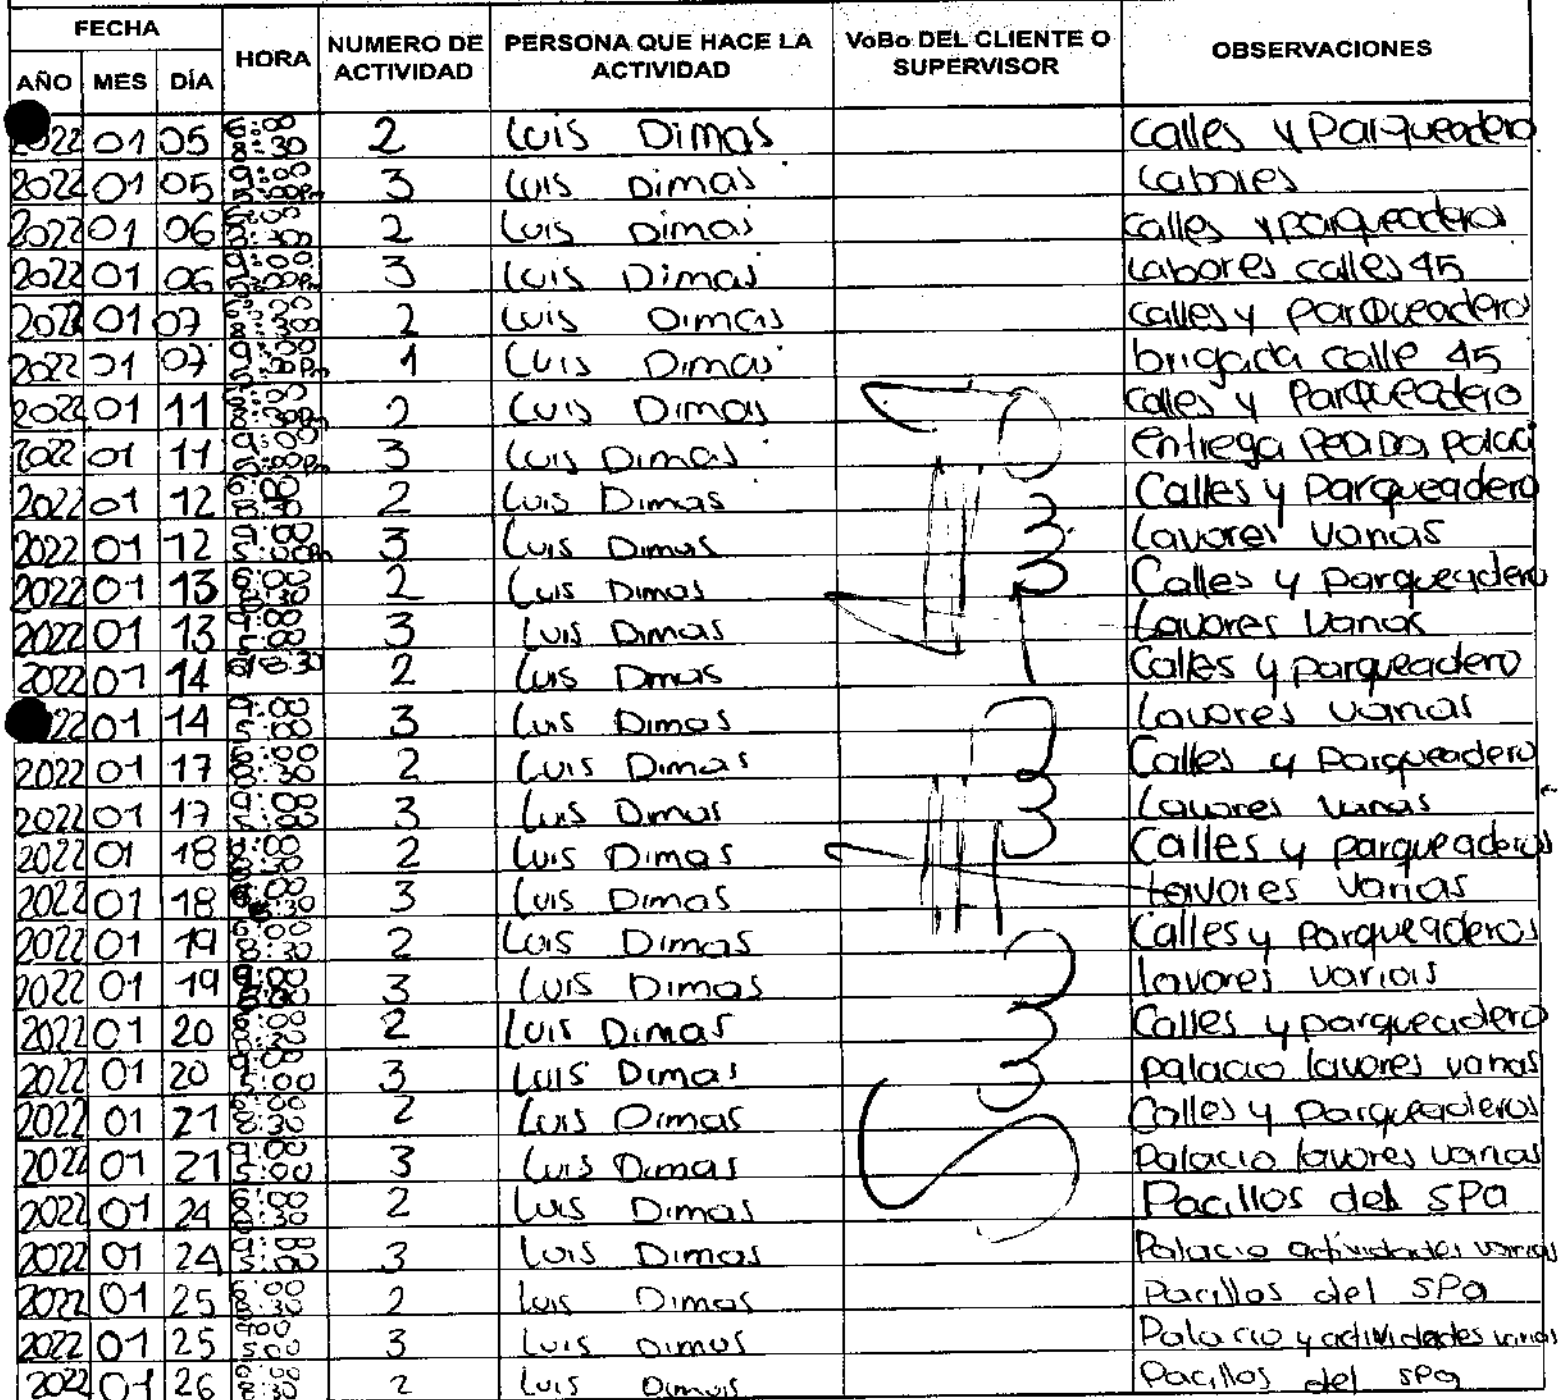 FECHA HORA NUMERO DE ACTIVIDAD PERSONA QUE HACE LA ACTIVIDAD VoBo DEL CLIENTE O SUPERVISOR OBSERVACIONES
AÑO MES DÍA
2022 01 05 6:00 8:30 2 Luis Dimas Calles y Parqueadero
2022 01 05 9:00 5:00Pm 3 Luis Dimas Labores
2022 01 06 6:00 8:30 2 Luis Dimas Calles y parqueaderos
2022 01 06 9:00 5:00Pm 3 Luis Dimas Labores calles 45
2022 01 07 8:30 2 Luis Dimas Calles y Parqueadero
2022 01 07 9:00 5:00Pm 1 Luis Dimas brigada calle 45
2022 01 11 6:00 8:30Pm 2 Luis Dimas Calles y Parqueadero
2022 01 11 9:00 5:00Pm 3 Luis Dimas Entrega Pedidos Palaci
2022 01 12 6:00 8:30 2 Luis Dimas Calles y Parqueadero
2022 01 12 9:00 5:00Pm 3 Luis Dimas Lavores varias
2022 01 13 6:00 8:30 2 Luis Dimas Calles y parqueadero
2022 01 13 9:00 5:00 3 Luis Dimas Lavores varias
2022 01 14 8:30 2 Luis Dimas Calles y parqueadero
2022 01 14 9:00 5:00 3 Luis Dimas Lavores varias
2022 01 17 6:00 8:30 2 Luis Dimas Calles y Parqueadero
2022 01 17 9:00 5:00 3 Luis Dimas Lavores varias
2022 01 18 8:30 2 Luis Dimas Calles y parqueaderos
2022 01 18 3 Luis Dimas lavores varias
2022 01 19 6:00 8:30 2 Luis Dimas Calles y parqueaderos
2022 01 19 9:00 3 Luis Dimas lavores varias
2022 01 20 6:00 8:30 2 Luis Dimas Calles y parqueadero
2022 01 20 9:00 5:00 3 Luis Dimas palacio lavores varias
2022 01 21 6:00 8:30 2 Luis Dimas Calles y Parqueaderos
2022 01 21 9:00 5:00 3 Luis Dimas Palacio lavores varias
2022 01 24 6:00 8:30 2 Luis Dimas Pacillos del SPa
2022 01 24 9:00 5:00 3 Luis Dimas Palacio actividades varias
2022 01 25 6:00 8:30 2 Luis Dimas Pacillos del SPa
2022 01 25 9:00 5:00 3 Luis Dimas Palacio y actividades varias
2022 01 26 6:00 8:30 2 Luis Dimas Pacillos del SPa